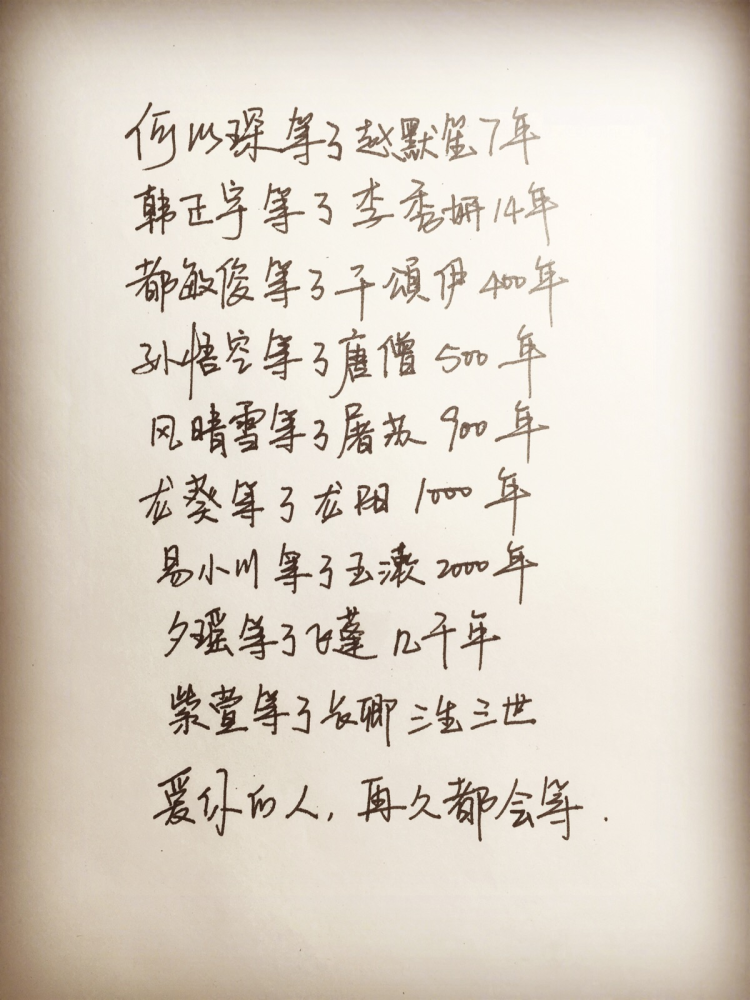 何以琛等了赵默笙7年
韩正宇等了李秀妍14年
都敏俊等了千頌伊400年
孙悟空等了唐僧500年
风晴雪等了屠苏900年
龙葵等了龙阳1000年
易小川等了玉漱2000年
夕瑶等了飞蓬几千年
紫萱等了长卿三生三世
爱你的人,再久都会等.